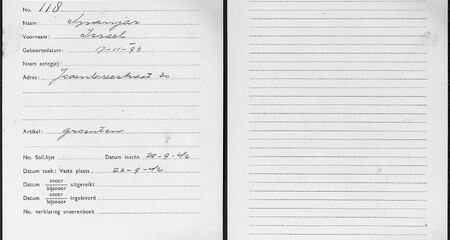 No. 118
Naam: Spanjar
Voornaam: Israel
Geboortedatum: 17-11-96
Naam echtg(e):
Adres: 20
Artikel: groenten
No. Soll.lijst Datum inschr. 20-9-42
Datum toek: Vaste plaats 23-9-42
Datum snoer bijsnoer uitgereikt
Datum snoer bijsnoer ingeleverd
No. verklaring snoerenboek